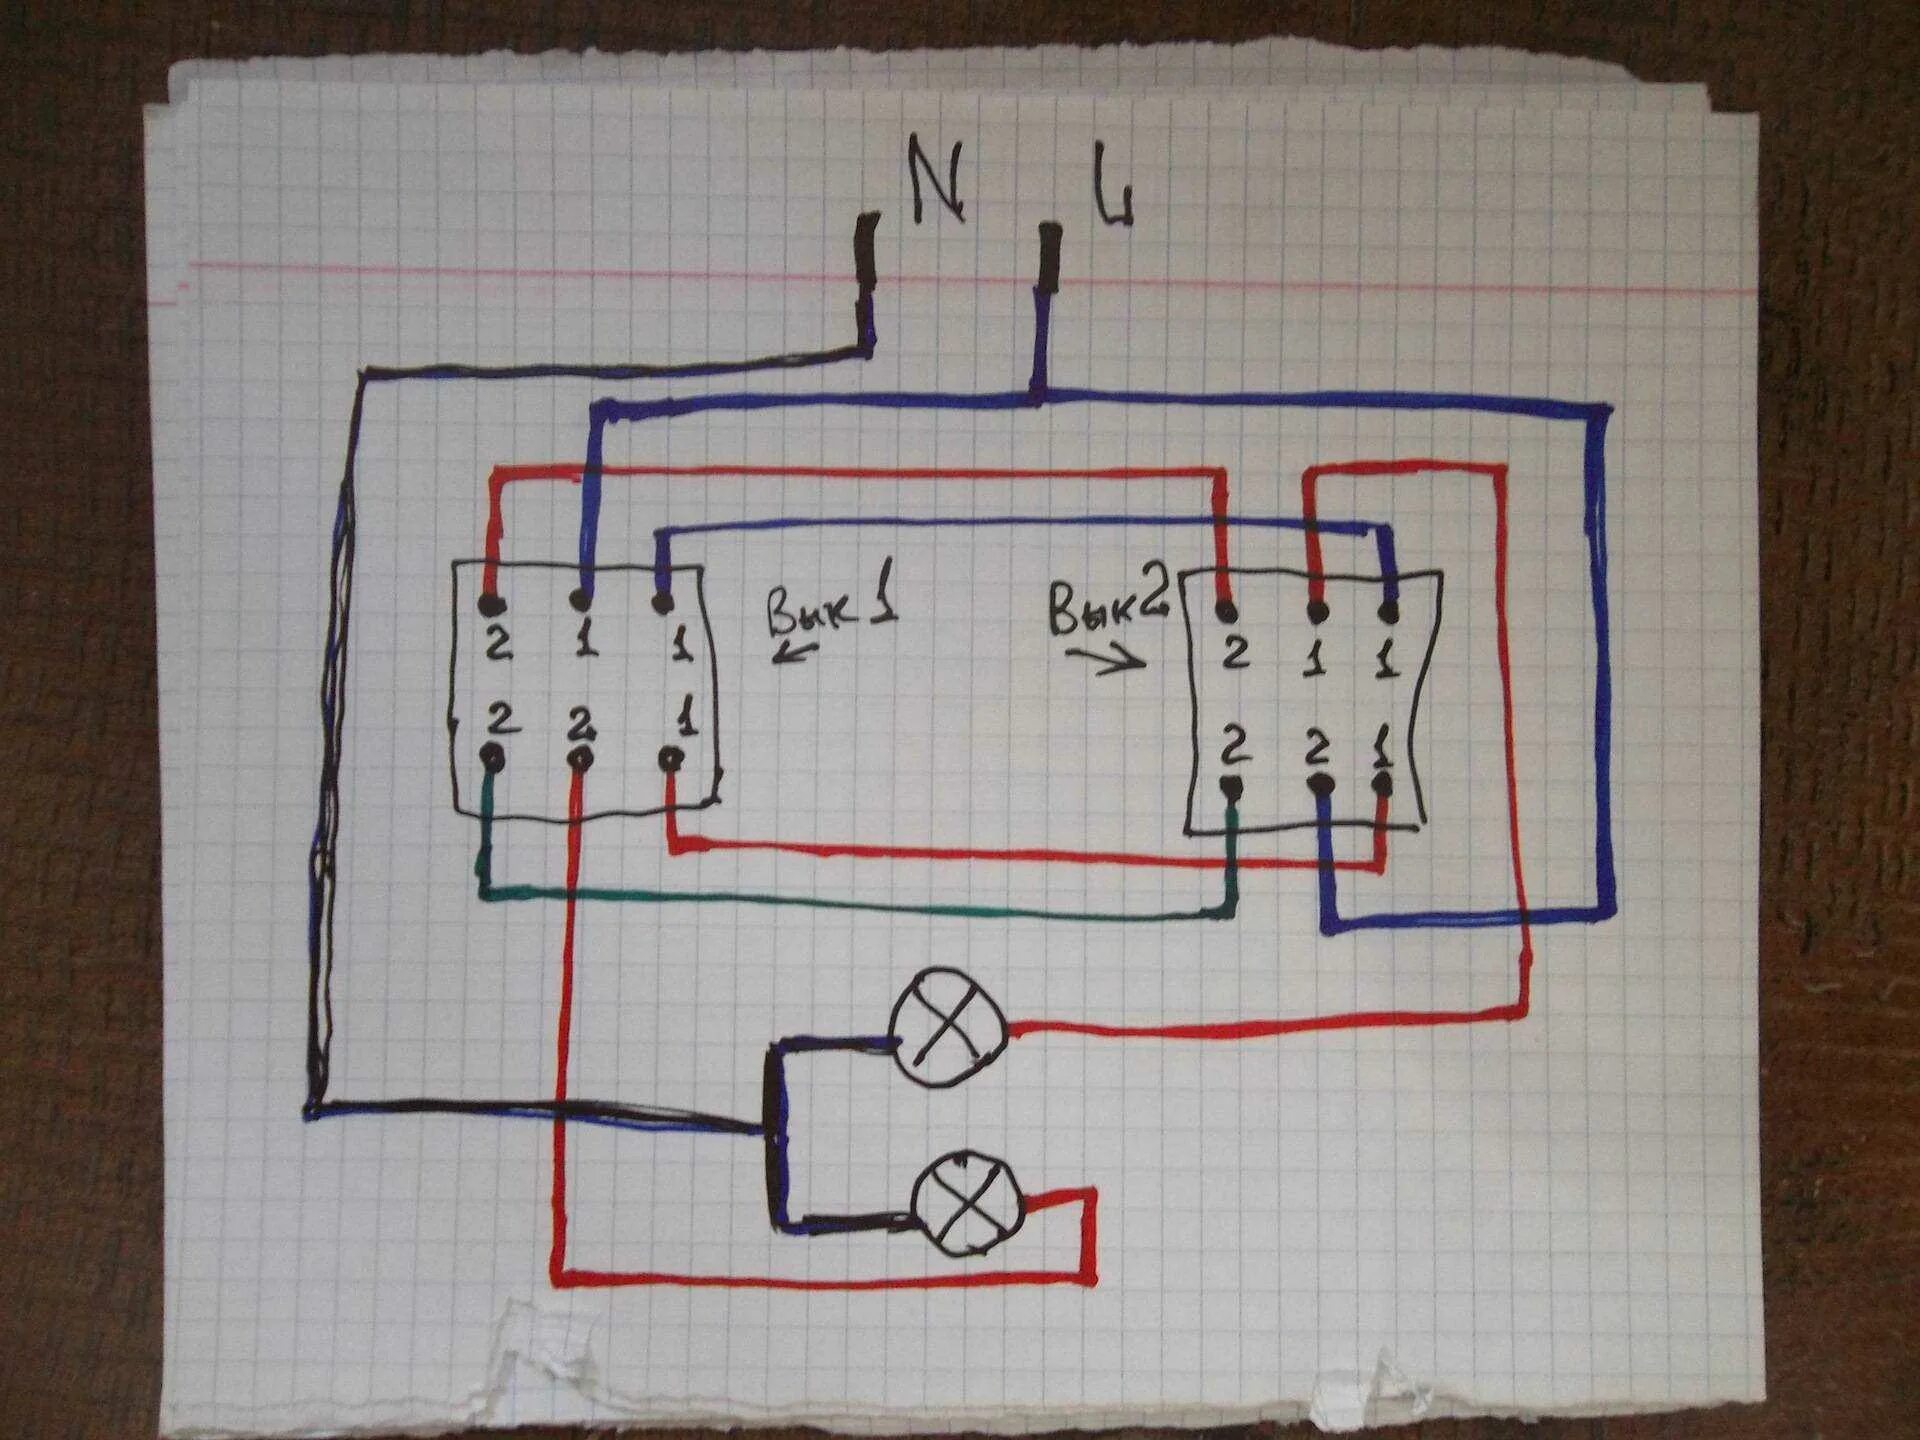 N L
Вык 1 Вык 2
2 1 1
2 2 1
2 1 1
2 2 1